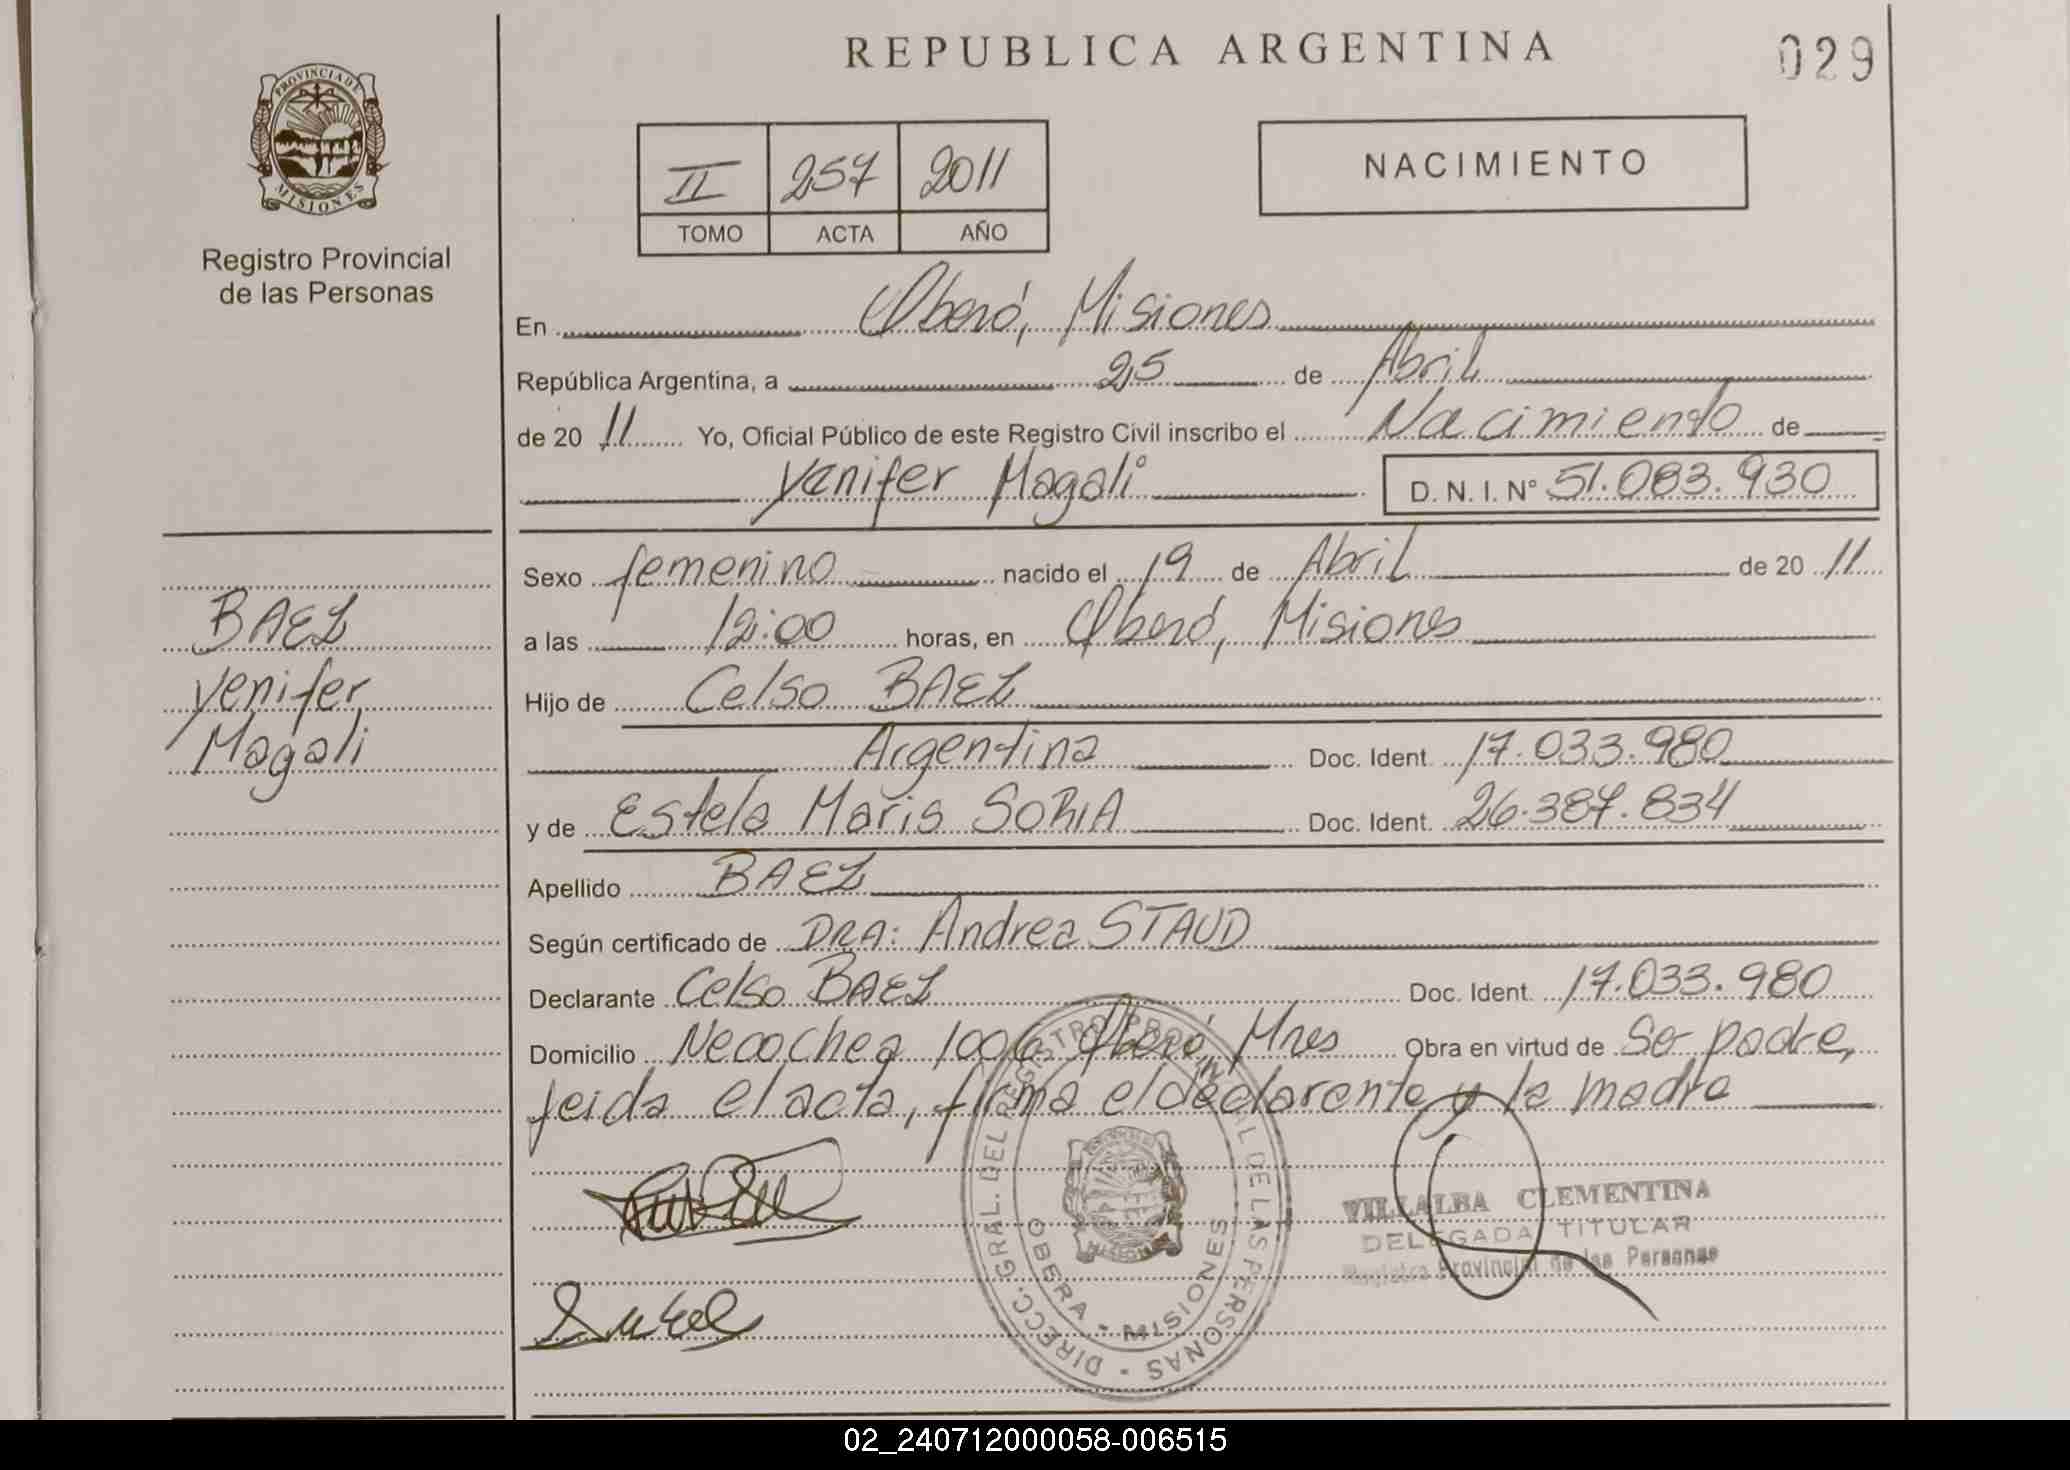 REPUBLICA ARGENTINA
029
PROVINCIA DE
MISIONES
Registro Provincial
de las Personas
II 257 2011
TOMO ACTA AÑO
NACIMIENTO
En Oberá, Misiones
República Argentina, a 25 de Abril
de 20 11 Yo, Oficial Público de este Registro Civil inscribo el Nacimiento de
Yenifer Magali D. N. I. N° 51.083.930
Sexo femenino nacido el 19 de Abril de 20 11
a las 12:00 horas, en Oberá, Misiones
Hijo de Celso BAEZ
Argentina Doc. Ident. 17.033.980
y de Estela Maris SORIA Doc. Ident. 26.387.834
Apellido BAEZ
Según certificado de DRA: Andrea STAUD
Declarante Celso BAEZ Doc. Ident. 17.033.980
Domicilio Necochea 1006 Oberá, Mnes Obra en virtud de Ser padre,
leida el acta, firma el declarante y la madre
BAEZ
Yenifer
Magali
DIRECC. GRAL. DEL REGISTRO PROVINCIAL DE LAS PERSONAS
OBERA - MISIONES
VILLALBA CLEMENTINA
DELEGADA TITULAR
Registro Provincial de las Personas
02_240712000058-006515